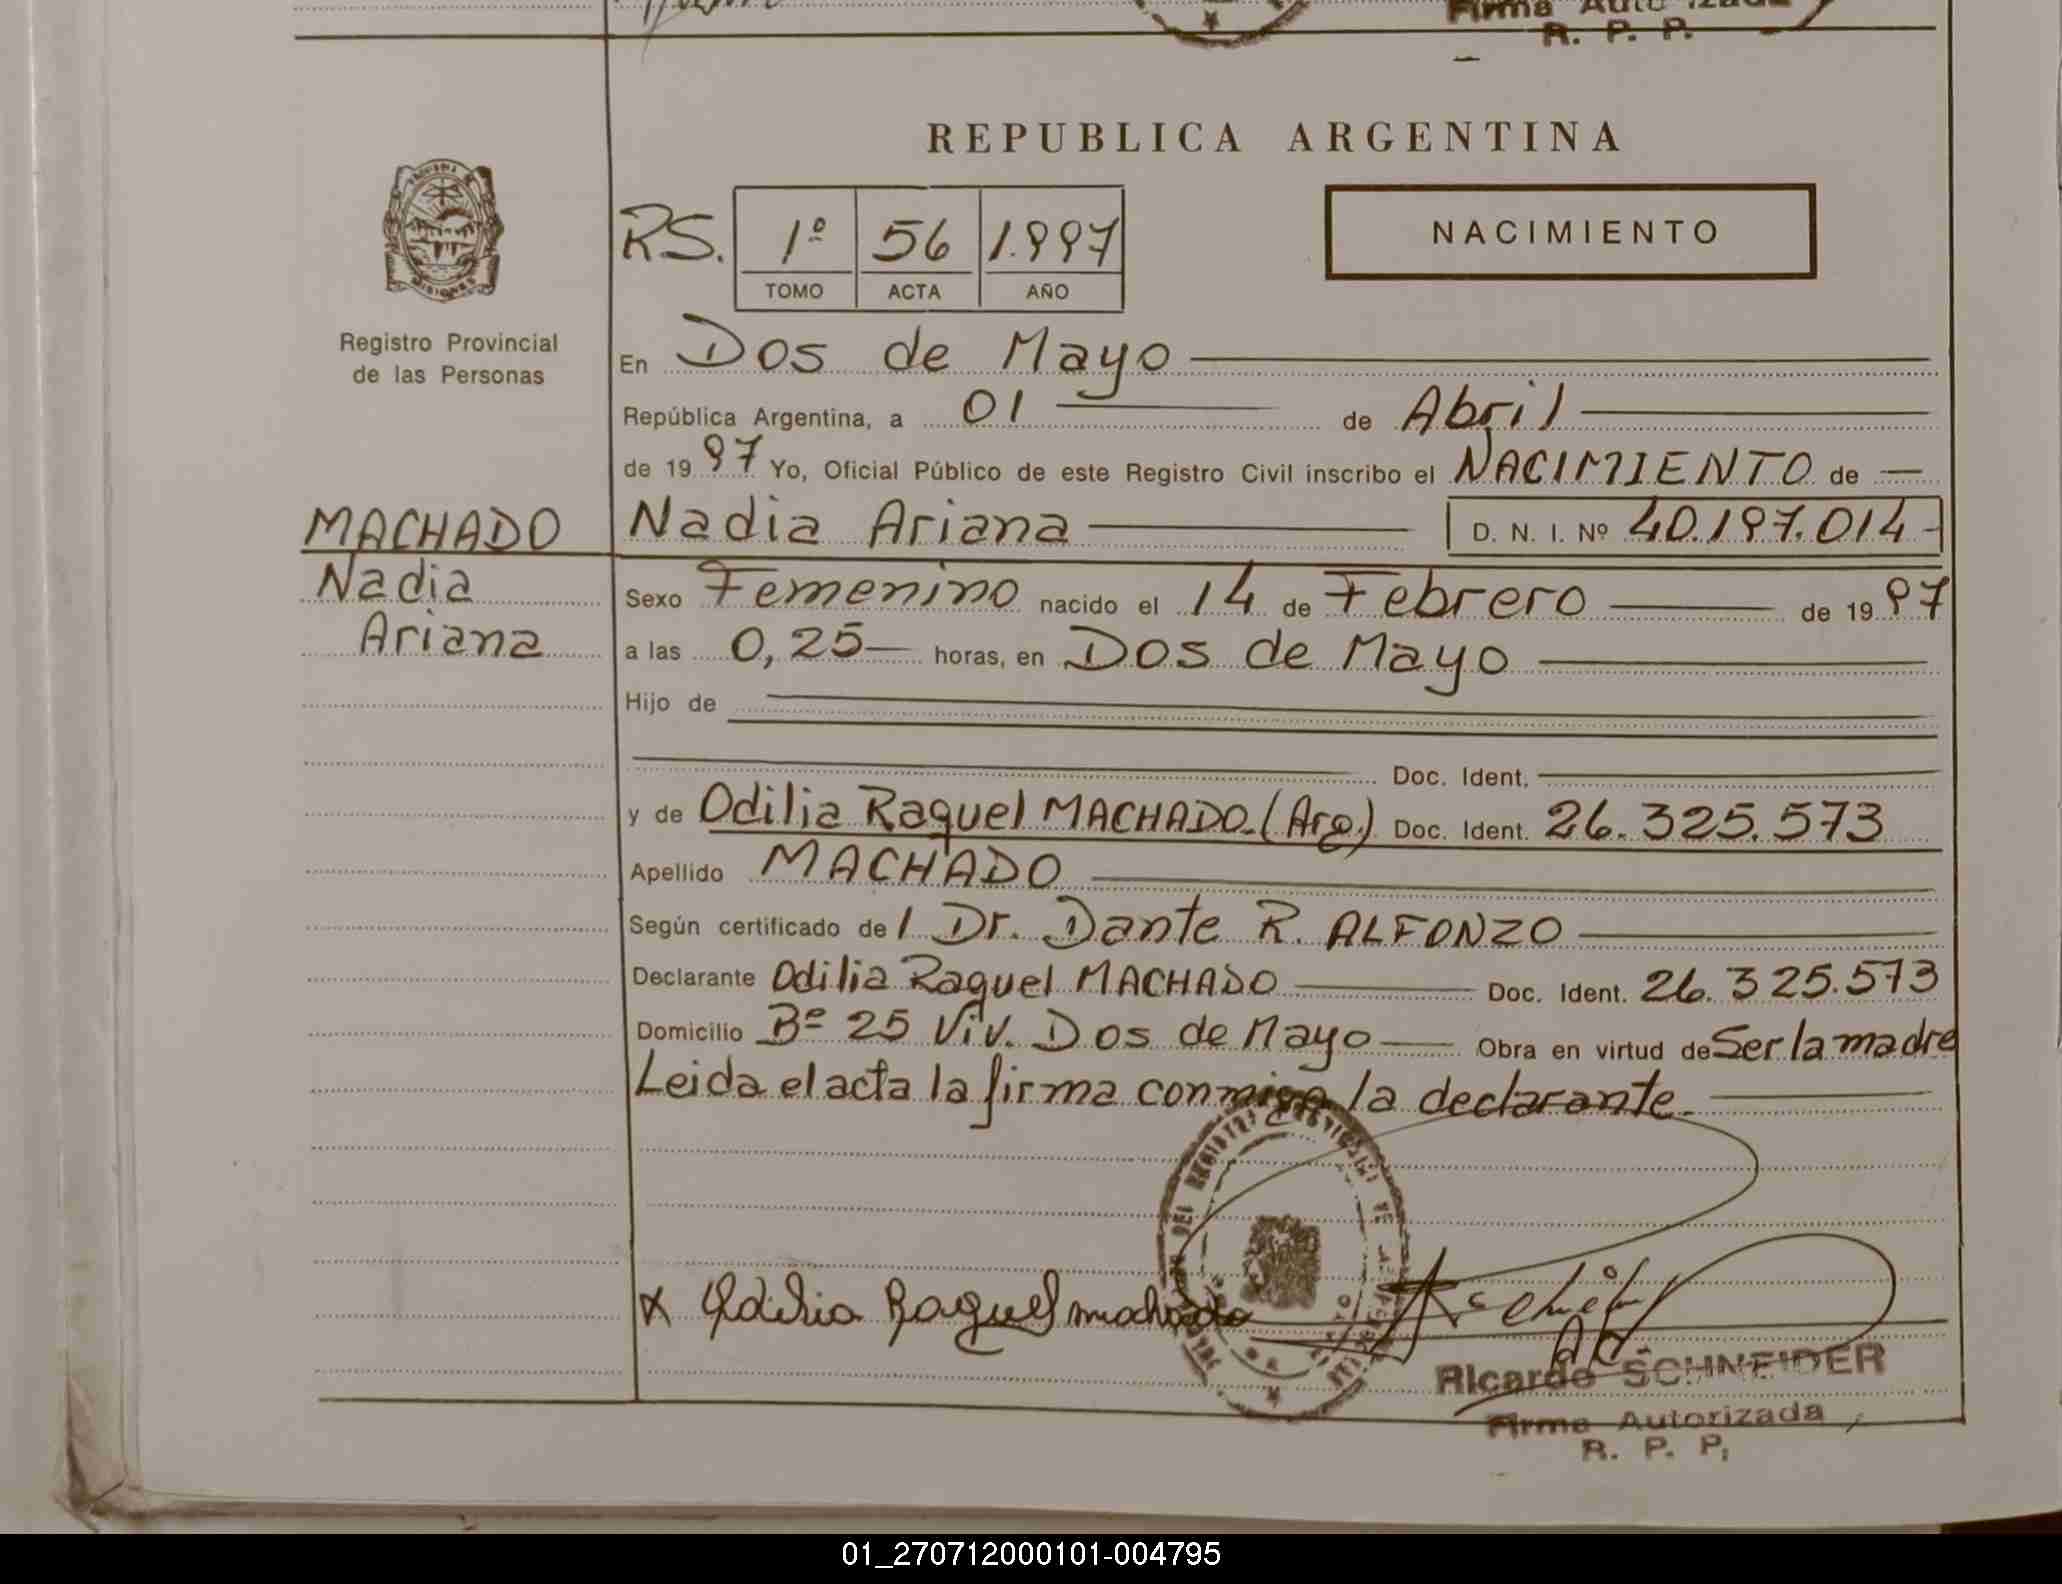 Firma Autorizada
R. P. P.
REPUBLICA ARGENTINA
MISIONES
Registro Provincial
de las Personas
RS. 1º 56 1.997
TOMO ACTA AÑO
NACIMIENTO
En Dos de Mayo
República Argentina, a 01 de Abril
de 19 97 Yo, Oficial Público de este Registro Civil inscribo el NACIMIENTO de
MACHADO
Nadia
Ariana
Nadia Ariana D. N. I. Nº 40.197.014
Sexo Femenino nacido el 14 de Febrero de 19 97
a las 0,25 horas, en Dos de Mayo
Hijo de
Doc. Ident.
y de Odilia Raquel MACHADO (Arg.) Doc. Ident. 26.325.573
Apellido MACHADO
Según certificado de l Dr. Dante R. ALFONZO
Declarante Odilia Raquel MACHADO Doc. Ident. 26.325.573
Domicilio Bº 25 Viv. Dos de Mayo Obra en virtud de Ser la madre
Leida el acta la firma conmigo la declarante.
x Odilia Raquel machado
Ricardo SCHNEIDER
Firma Autorizada
R. P. P.
01_270712000101-004795